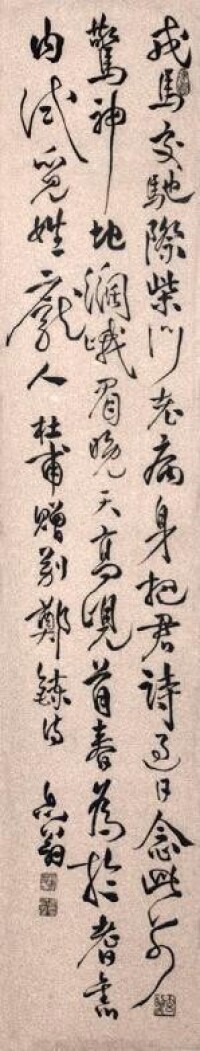 戎馬交馳際柴門老病身把君詩過日念此別
驚神地濶峨眉晚天高峴首春為於耆舊
內試覓姓龐人 杜甫贈別鄭鍊詩 翁